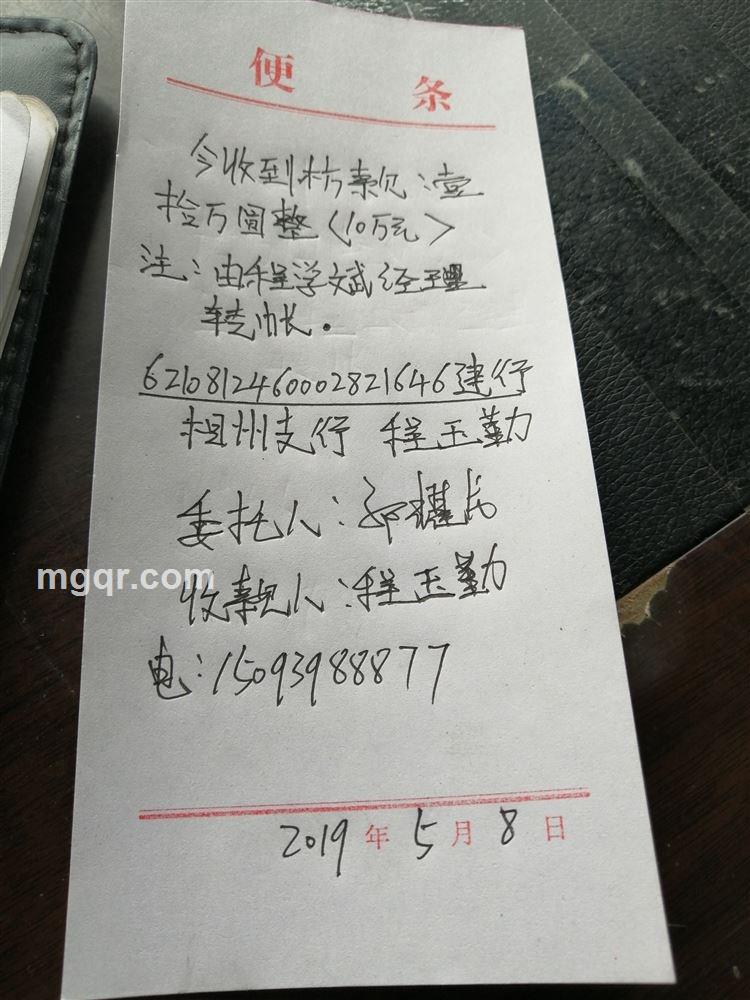 便 条
今收到枋款：壹
拾万圆整（10万元）
注：由程学斌经理
转帐。
6210812460002821646建行
相州支行 程玉勤
委托人：
mgqr.com
收款人：程玉勤
电：15093988877
2019年5月8日